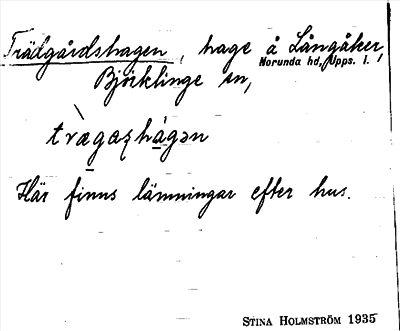 Trälgårdshagen, hage å Långåker,
Norunda hd, Upps. l.
Björklinge sn,
trægaʂhagən
Här finns lämningar efter hus.
STINA HOLMSTRÖM 1935